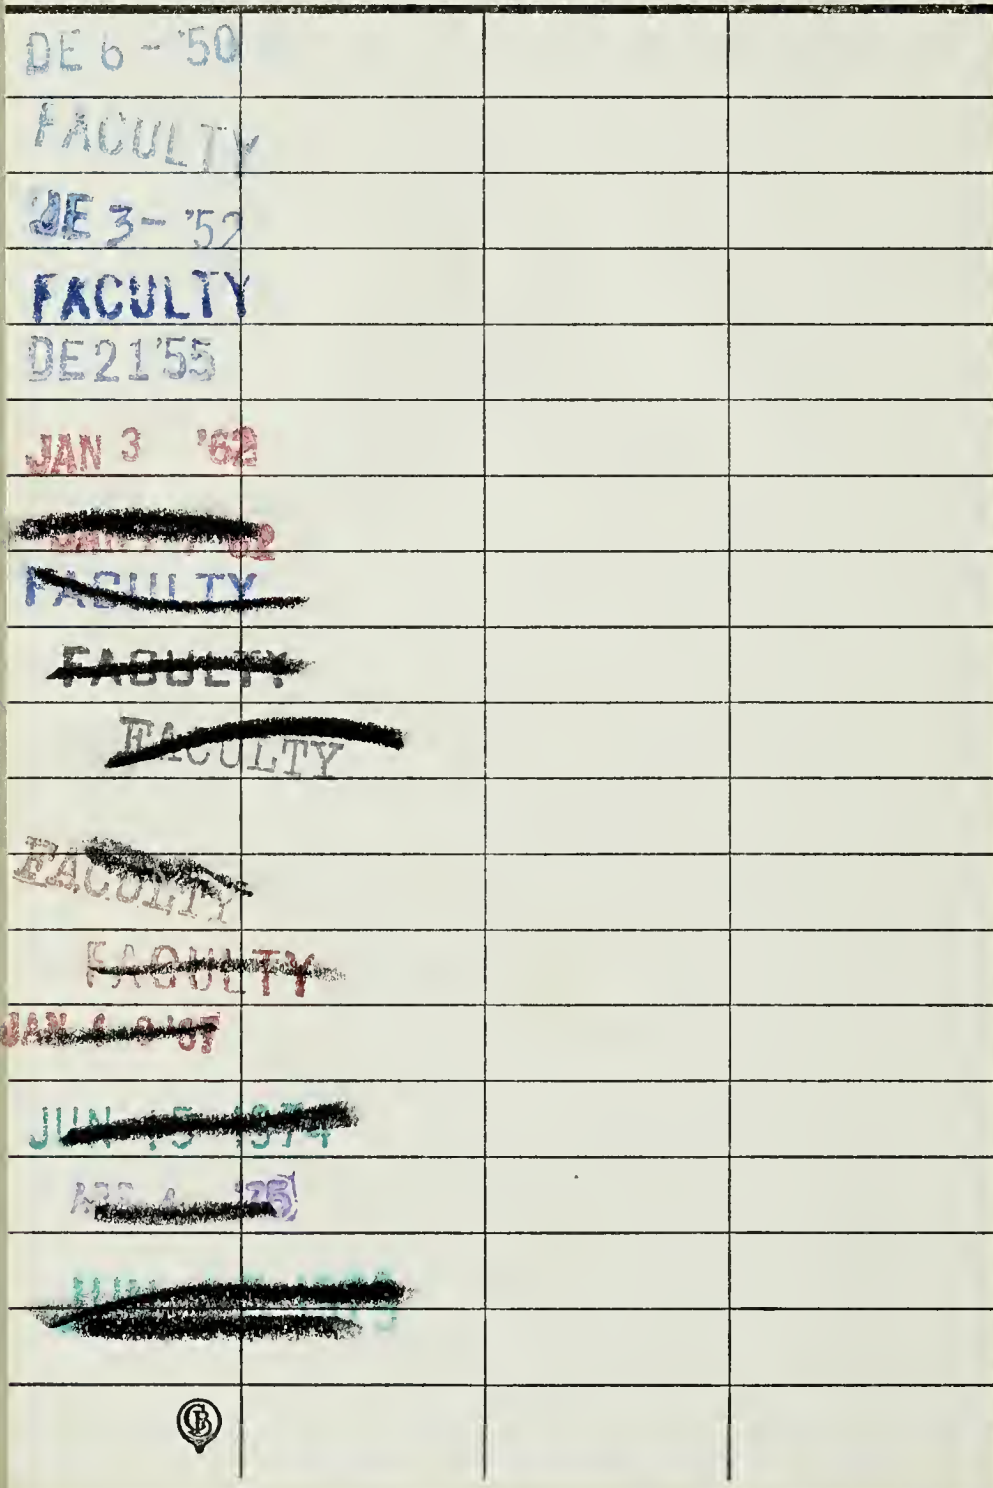 DE 6 - '50
FACULTY
3 - '52
FACULTY
DE 21 '55
JAN 3 '62
'62
FACULTY
FACULTY
FACULTY
FACULTY
FACULTY
JAN '67
JUN 15 1974
'75
JUN